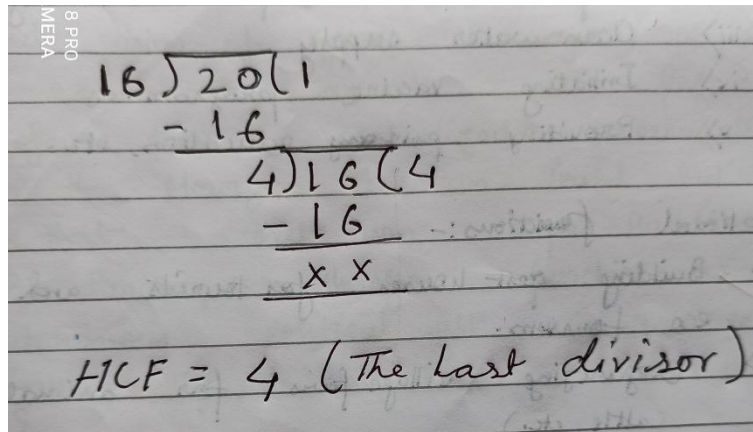 8 PRO
MERA
16)20(1
-16
4)16(4
-16
x x
HCF = 4 (The Last divisor)